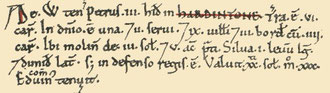 De. W ten Petrus. iii. hid in HARDINTONE. Tra. ē. vi.
car̃. In dnio. ē una. 7 ii. serui. 7 ix. uilli 7 iii. bord. cũ. iiii.
car̃. Ibi molin̄ de. iii. sol. 7 v. ac̃ p̃ta. Silua. i. leuu lg̃
7 dimid lat̃. s; in defenso regis. ē. Valuit. xx. sol. m̊. xxx.
Eduin com̃ tenuit.